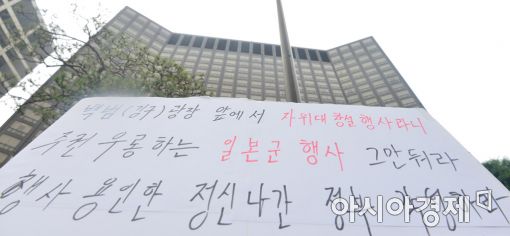 백범(김구)광장 앞에서 자위대 창설 행사라니
주권 우롱하는 일본군 행사 그만둬라
행사 용인한 정신나간 정부
아시아경제